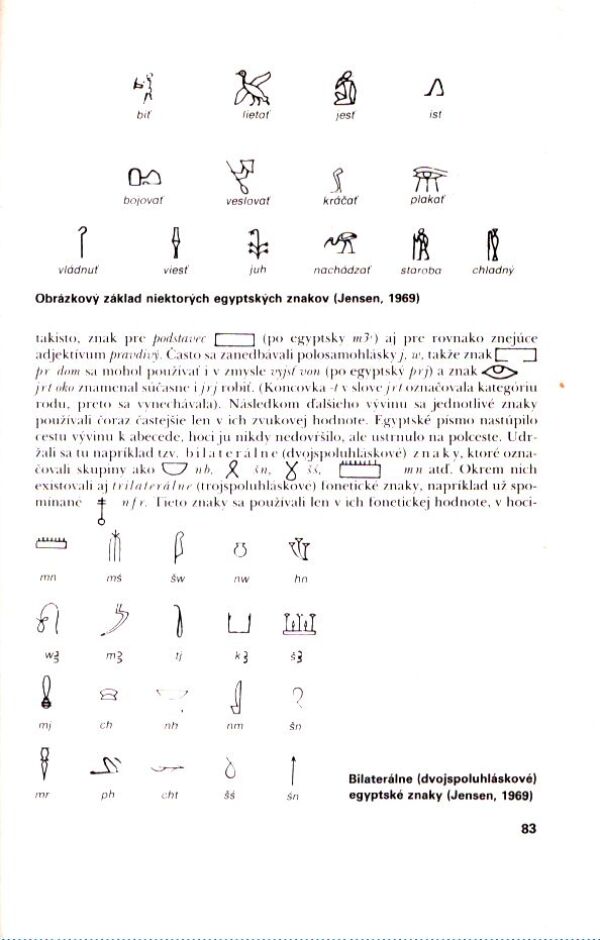 biť lietať jesť ísť
bojovať veslovať kráčať plakať
vládnuť viesť juh nachádzať staroba chladný
Obrázkový základ niektorých egyptských znakov (Jensen, 1969)
takisto, znak pre podstavec (po egyptsky m3ʿ) aj pre rovnako znejúce
adjektívum pravdivý. Často sa zanedbávali polosamohlásky j, w, takže znak
pr dom sa mohol používať i v zmysle vyjsť von (po egyptsky prj) a znak
jrt oko znamenal súčasne i jrj robiť. (Koncovka -t v slove jrt označovala kategóriu
rodu, preto sa vynechávala). Následkom ďalšieho vývinu sa jednotlivé znaky
používali čoraz častejšie len v ich zvukovej hodnote. Egyptské písmo nastúpilo
cestu vývinu k abecede, hoci ju nikdy nedovŕšilo, ale ustrnulo na polceste. Udr-
žali sa tu napríklad tzv. bilaterálne (dvojspoluhláskové) znaky, ktoré ozna-
čovali skupiny ako nb, šn, šś, mn atď. Okrem nich
existovali aj trilaterálne (trojspoluhláskové) fonetické znaky, napríklad už spo-
mínané nfr. Tieto znaky sa používali len v ich fonetickej hodnote, v hoci-
mn mś šw nw hn
wȝ mȝ tj kȝ šȝ
mj ch nh nm šn
mr ph cht šś śn
Bilaterálne (dvojspoluhláskové)
egyptské znaky (Jensen, 1969)
83